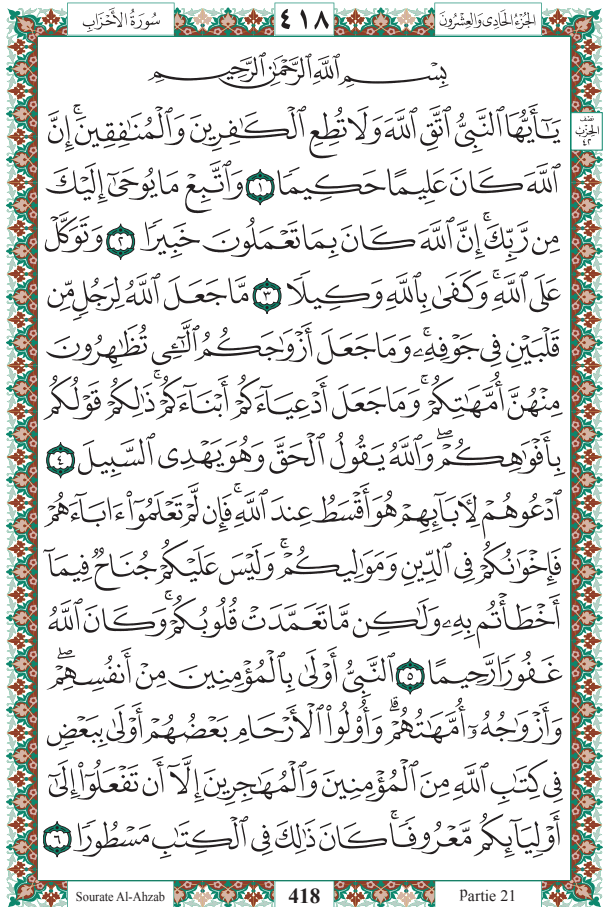 سُورَةُ الأَحْزَابِ ٤١٨ الجُزْءُ الحَادِي وَالعِشْرُونَ
بِسْمِ ٱللَّهِ ٱلرَّحْمَٰنِ ٱلرَّحِيمِ
نصف
الحِزْبُ
٤٢
يَـٰٓأَيُّهَا ٱلنَّبِىُّ ٱتَّقِ ٱللَّهَ وَلَا تُطِعِ ٱلْكَـٰفِرِينَ وَٱلْمُنَـٰفِقِينَ ۗ إِنَّ
ٱللَّهَ كَانَ عَلِيمًا حَكِيمًا ١ وَٱتَّبِعْ مَا يُوحَىٰٓ إِلَيْكَ
مِن رَّبِّكَ ۚ إِنَّ ٱللَّهَ كَانَ بِمَا تَعْمَلُونَ خَبِيرًا ٢ وَتَوَكَّلْ
عَلَى ٱللَّهِ ۚ وَكَفَىٰ بِٱللَّهِ وَكِيلًا ٣ مَّا جَعَلَ ٱللَّهُ لِرَجُلٍ مِّن
قَلْبَيْنِ فِى جَوْفِهِۦ ۚ وَمَا جَعَلَ أَزْوَٰجَكُمُ ٱلَّـٰٓـِٔى تُظَـٰهِرُونَ
مِنْهُنَّ أُمَّهَـٰتِكُمْ ۚ وَمَا جَعَلَ أَدْعِيَآءَكُمْ أَبْنَآءَكُمْ ۚ ذَٰلِكُمْ قَوْلُكُم
بِأَفْوَٰهِكُمْ ۖ وَٱللَّهُ يَقُولُ ٱلْحَقَّ وَهُوَ يَهْدِى ٱلسَّبِيلَ ٤
ٱدْعُوهُمْ لِـَٔابَآئِهِمْ هُوَ أَقْسَطُ عِندَ ٱللَّهِ ۚ فَإِن لَّمْ تَعْلَمُوٓا۟ ءَابَآءَهُمْ
فَإِخْوَٰنُكُمْ فِى ٱلدِّينِ وَمَوَٰلِيكُمْ ۚ وَلَيْسَ عَلَيْكُمْ جُنَاحٌ فِيمَآ
أَخْطَأْتُم بِهِۦ وَلَـٰكِن مَّا تَعَمَّدَتْ قُلُوبُكُمْ ۚ وَكَانَ ٱللَّهُ
غَفُورًا رَّحِيمًا ٥ ٱلنَّبِىُّ أَوْلَىٰ بِٱلْمُؤْمِنِينَ مِنْ أَنفُسِهِمْ ۖ
وَأَزْوَٰجُهُۥٓ أُمَّهَـٰتُهُمْ ۗ وَأُو۟لُوا۟ ٱلْأَرْحَامِ بَعْضُهُمْ أَوْلَىٰ بِبَعْضٍ
فِى كِتَـٰبِ ٱللَّهِ مِنَ ٱلْمُؤْمِنِينَ وَٱلْمُهَـٰجِرِينَ إِلَّآ أَن تَفْعَلُوٓا۟ إِلَىٰٓ
أَوْلِيَآئِكُم مَّعْرُوفًا ۚ كَانَ ذَٰلِكَ فِى ٱلْكِتَـٰبِ مَسْطُورًا ٦
Sourate Al-Ahzab 418 Partie 21